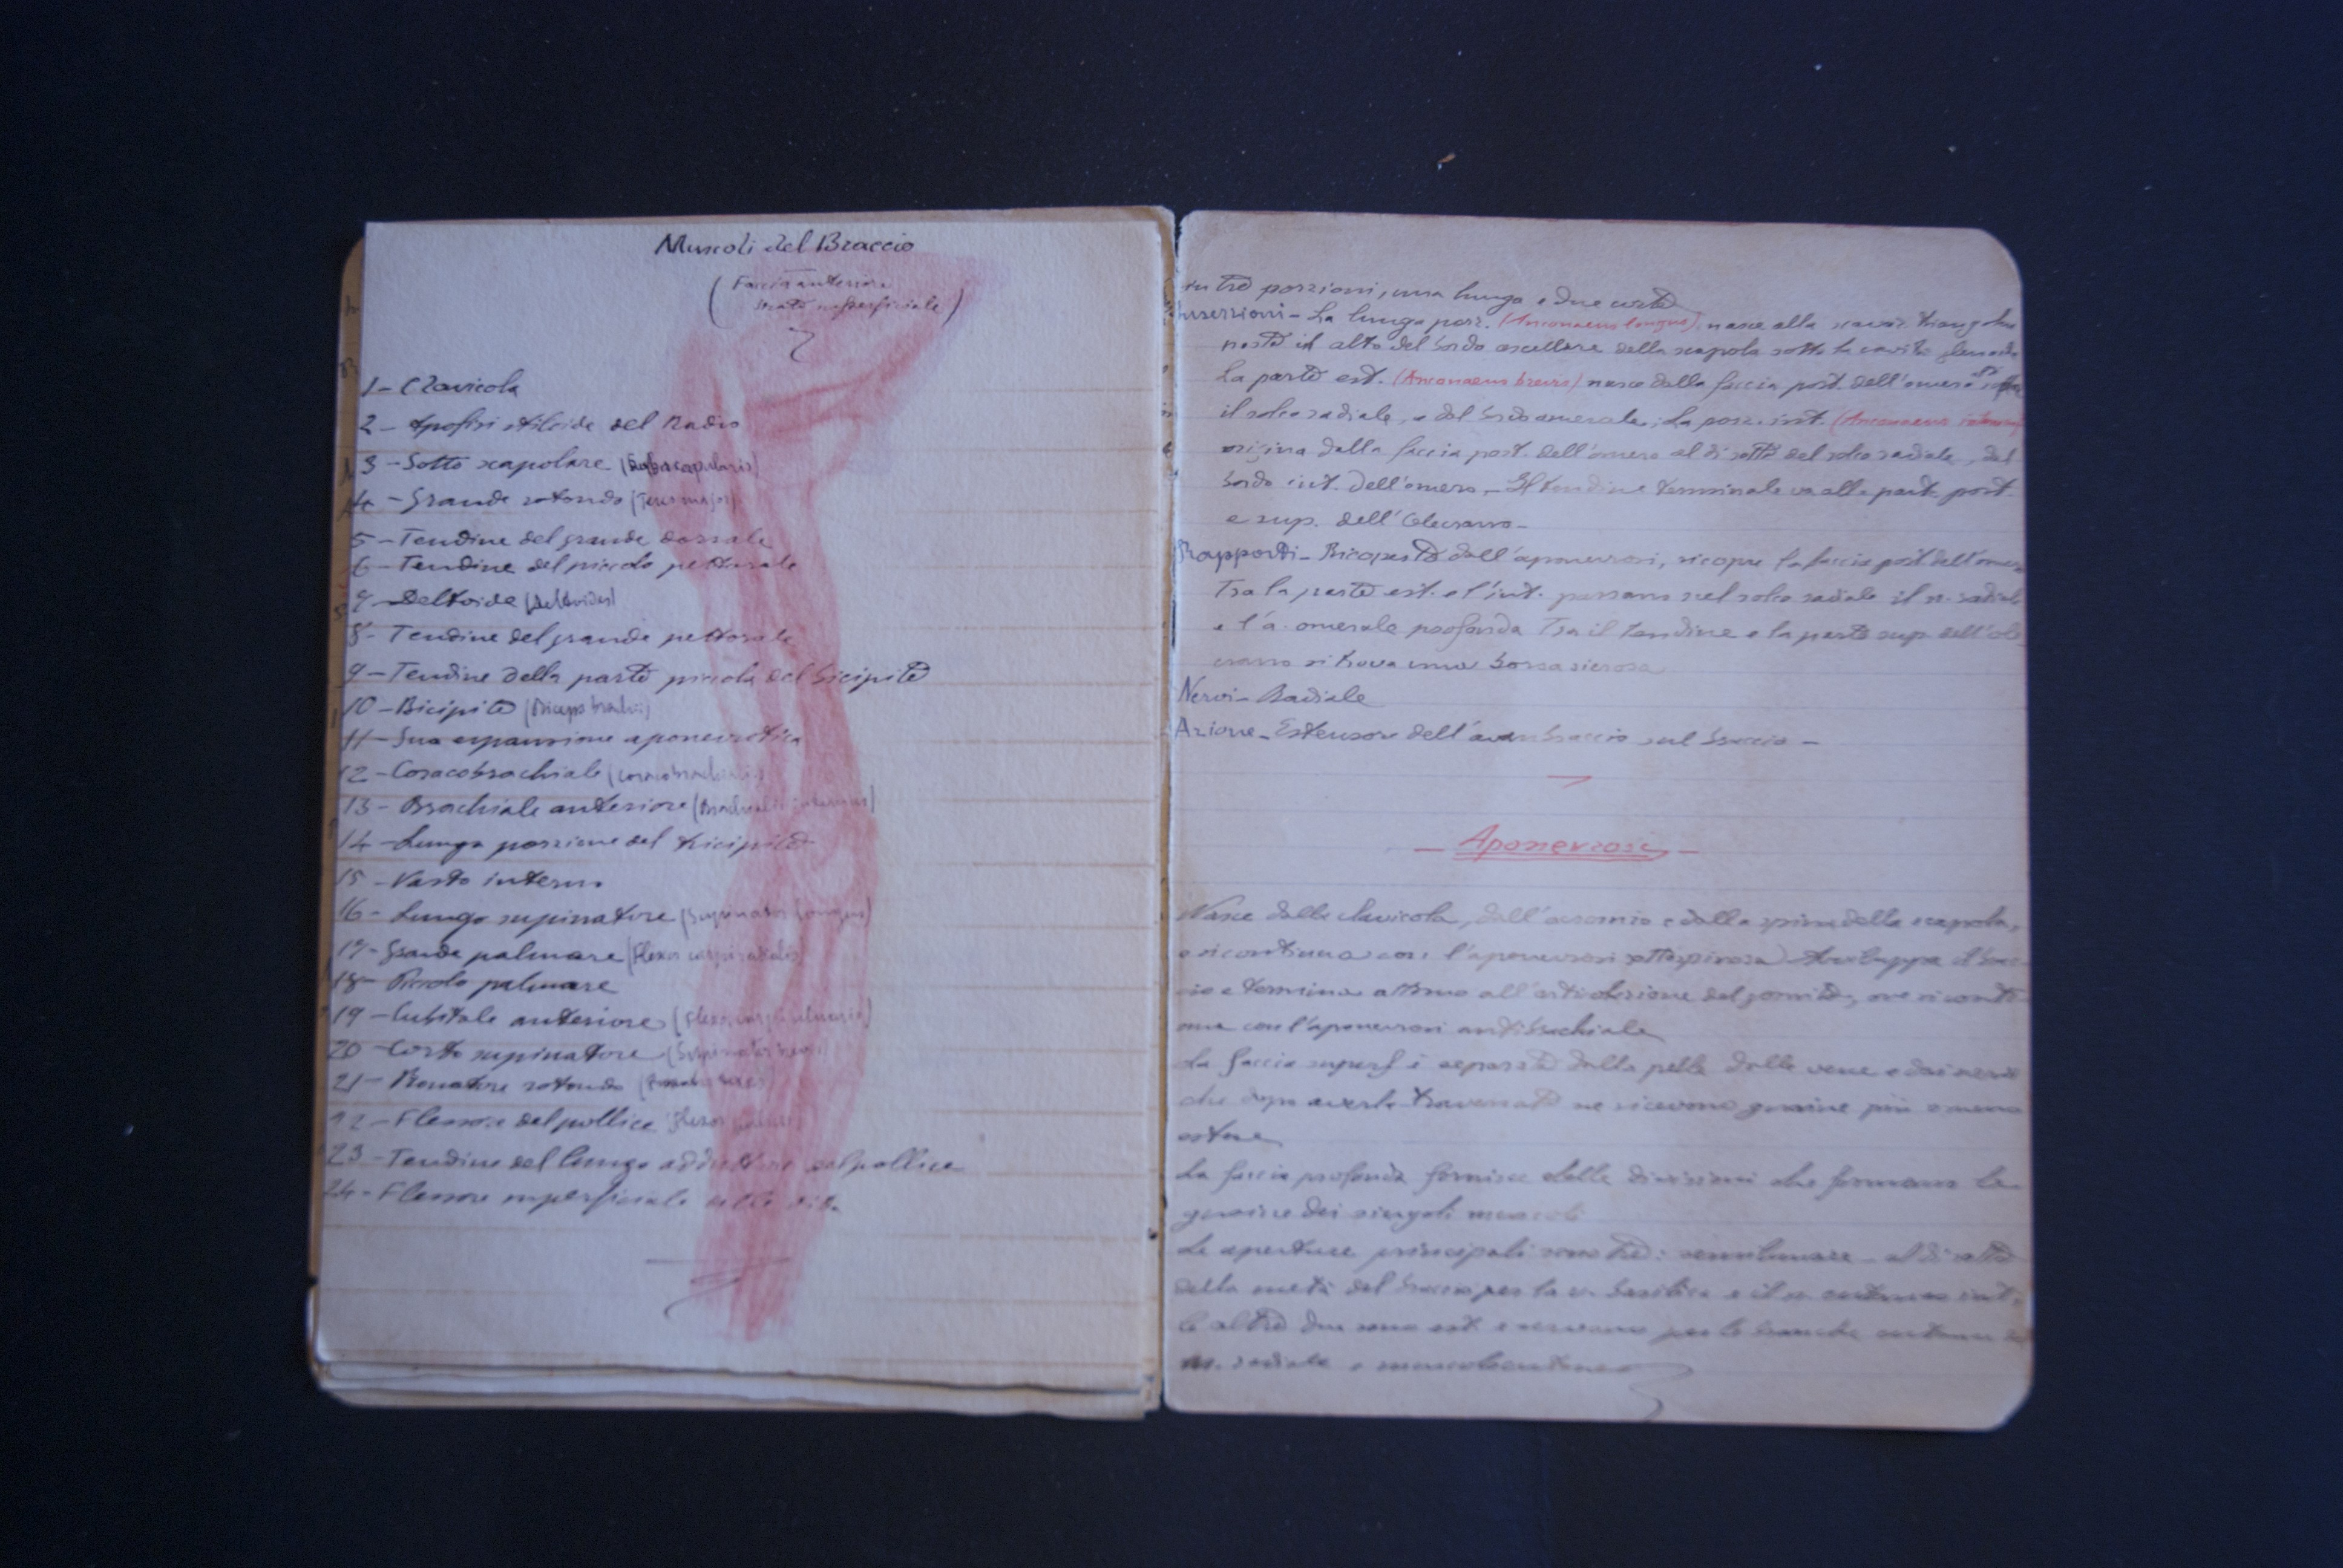 Muscoli del Braccio
(Faccia anteriore
strato superficiale)
1 - Clavicola
2 - Apofisi stiloide del Radio
3 - Sotto scapolare (Subscapularis)
4 - Grande rotondo (Teres major)
5 - Tendine del grande dorsale
6 - Tendine del piccolo pettorale
7 - Deltoide (Deltoides)
8 - Tendine del grande pettorale
9 - Tendine della parte piccola del bicipite
10 - Bicipite (Biceps brachii)
11 - Sua espansione aponevrotica
12 - Coracobrachiale (coracobrachialis)
13 - Brachiale anteriore (Brachialis internus)
14 - Lunga porzione del tricipite
15 - Vasto interno
16 - Lungo supinatore (Supinator longus)
17 - Grande palmare (Flexor carpi radialis)
18 - Piccolo palmare
19 - Cubitale anteriore (Flexor carpi ulnaris)
20 - Corto supinatore (Supinator brevis)
21 - Pronatore rotondo (Pronator teres)
22 - Flessore del pollice (Flexor
23 - Tendine del lungo adduttore del pollice
24 - Flessore superficiale delle dita
in tre porzioni, una lunga e due corte
Inserzioni - La lunga porz. (Anconaeus longus), nasce alla triangolare
posta in alto del bordo ascellare della scapola sotto la cavità glenoide
La parte est. (Anconaeus brevis) nasce dalla faccia post. dell'omero
il solco radiale, e dal bordo omerale; La porz. int. (Anconaeus internus)
origina dalla faccia post. dell'omero al di sotto del solco radiale, dal
bordo int. dell'omero - Il tendine terminale va alla part. post.
e sup. dell'Olecrano -
Rapporti - Ricoperto dall'aponevrosi, ricopre la faccia post dell'omero
Tra la parte est. e l'int. passano nel solco radiale il n. radiale
e l'a. omerale profonda Tra il tendine e la parte sup. dell'ole
crano si trova una borsa sierosa
Nervi - Radiale
Azione - Estensore dell'avambraccio sul braccio -
- Aponevrosi -
Nasce dalla clavicola, dall'acromio e dalla spina della scapola,
e si continua con l'aponevrosi sottospinosa. Avviluppa il brac
cio e termina attorno all'articolazione del gomito, ove si conti
nua con l'aponevrosi antibrachiale
La faccia superf è separata dalla pelle dalle vene e dai nervi
che dopo averla traversata ne ricevono guaine più o meno
estese
La faccia profonda fornisce delle divisioni che formano le
guaine dei singoli muscoli
Le aperture principali sono tre: semilunare - al di sotto
della metà del braccio per la v. basilica e il n. cutaneo int.;
le altre due sono est. e servono per le branche cutanee
n. radiale e muscolocutaneo